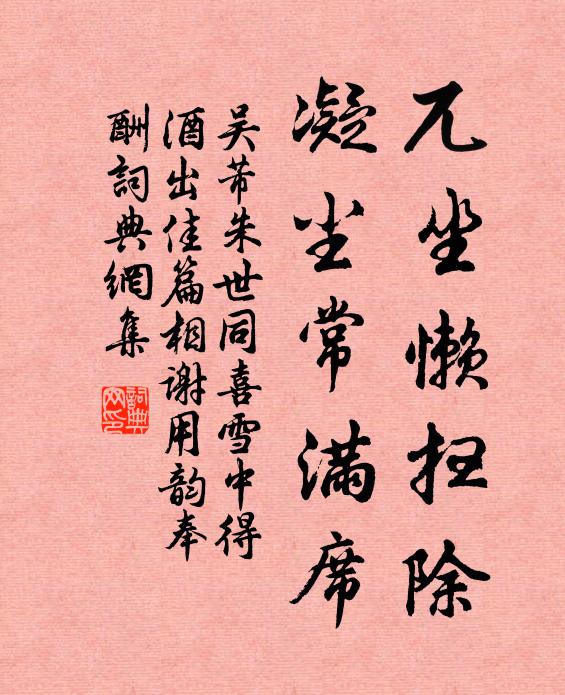 兀坐懒扫除
凝尘常满席
吴芾朱世同喜雪中得
酒出佳篇相谢用韵奉
酬词典网集
词典网印